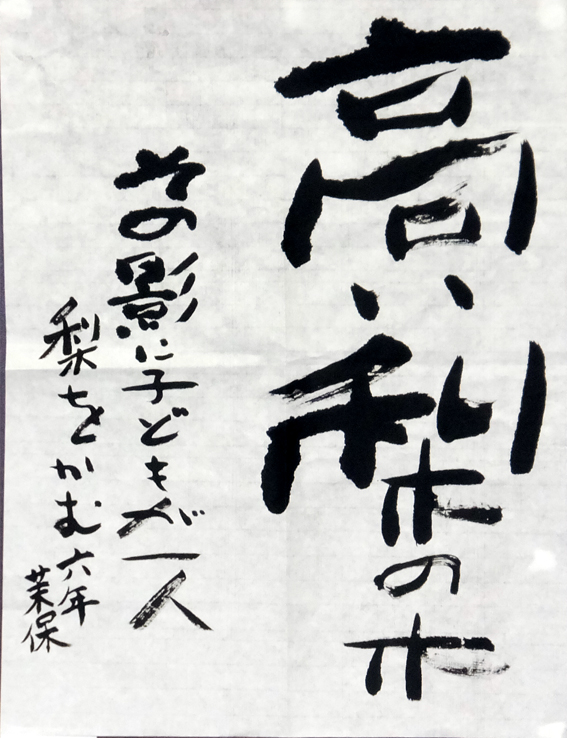 高い梨の木
その影に子どもが一人
梨をかむ
六年
茉保